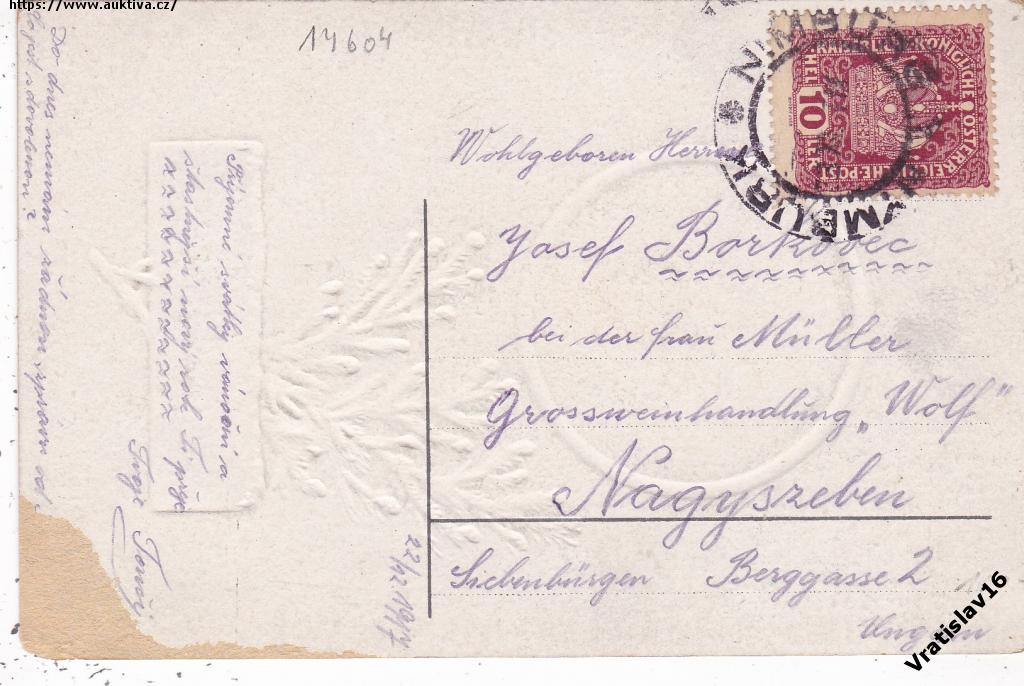 https://www.auktiva.cz/
14604
Příjemné svátky vánoční a
šťastnější nový rok Ti přeje
xxxxxxxxxx
Tvoje Toni.
Do dnes nemám řádnou zprávu od
22/12 1917
KAIS. KÖNIGLICHE ÖSTERREICHISCHE POST
10
NIMBURG
NYMBURK
Wohlgeboren Herrn
Josef Borkovec
bei der frau Müller
Grossweinhandlung „Wolf"
Nagyszeben
Siebenbürgen Berggasse 2
Ungarn
Vratislav16